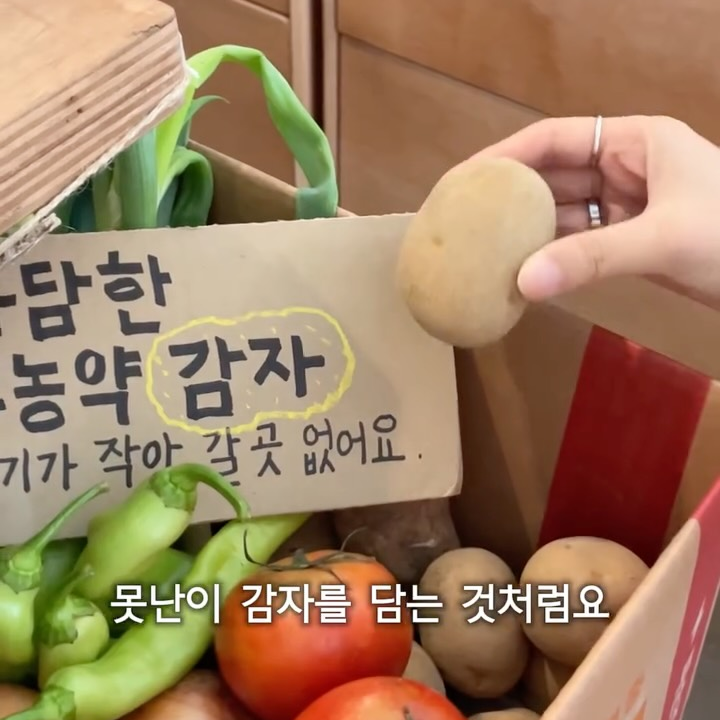 담한
농약 감자
기가 작아 갈곳 없어요.
못난이 감자를 담는 것처럼요